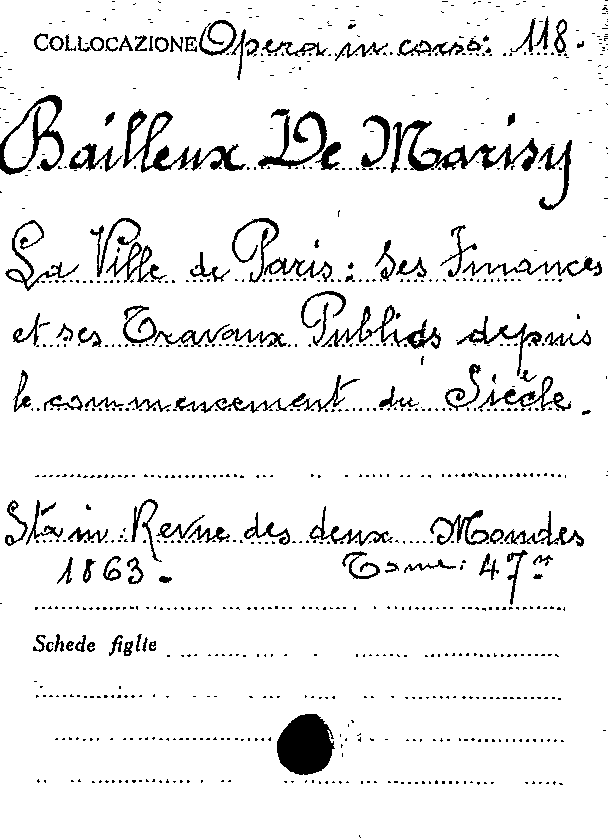 COLLOCAZIONE Opera in corso: 118.
Bailleux De Marisy
La Ville de Paris: Ses Finances
et ses Travaux Publics depuis
le commencement du Siècle.
Sta in Revue des deux Mondes
1863. Tome: 47.me
Schede figlie